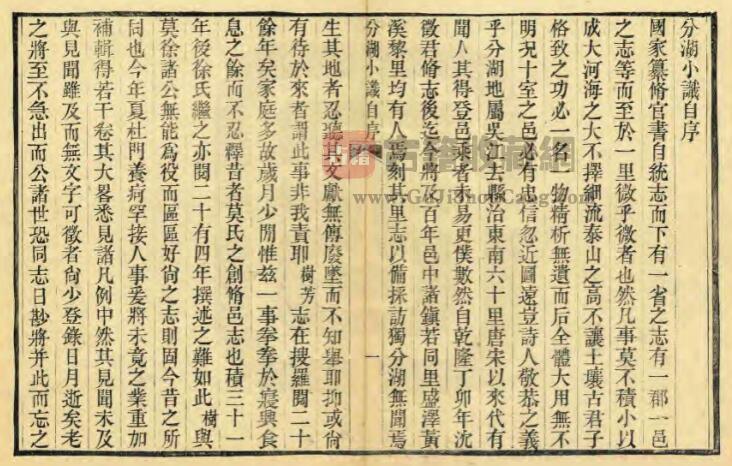 分湖小識自序
國家纂脩官書自統志而下有一省之志有一郡一邑
之志等而至於一里微乎微者也然凡事莫不積小以
成大河海之大不擇細流泰山之高不讓土壤古君子
格致之功必一名一物精析無遺而后全體大用無不
明况十室之邑必有忠信忽近圖遠豈詩人敬恭之義
乎分湖地屬吳江去縣治東南六十里唐宋以來代有
聞人其得登邑乘者未易更僕數然自乾隆丁卯年沈
徵君脩志後迄今將及百年邑中諸鎮若同里盛澤黃
溪黎里均有人焉刻其里志以備採訪獨分湖無聞焉
分湖小識自序 一
生其地者忍聽其文獻無傳廢墜而不知舉耶抑或尙
有待於來者謂此事非我責耶樹芳志在搜羅閱二十
餘年矣家庭多故歲月少閒惟茲一事拳拳於寢興食
息之餘而不忍釋昔者莫氏之創脩邑志也積三十一
年後徐氏繼之亦閱二十有四年撰述之難如此樹與
莫徐諸公無能爲役而區區好尙之志則固今昔之所
同也今年夏杜門養疴罕接人事爰將未竟之業重加
補輯得若干卷其大畧悉見諸凡例中然其見聞未及
與見聞雖及而無文字可徵者尙少登錄日月逝矣老
之將至不急出而公諸世恐同志日尠將并此而忘之
古籍收藏网
www.GuJiShouCang.com